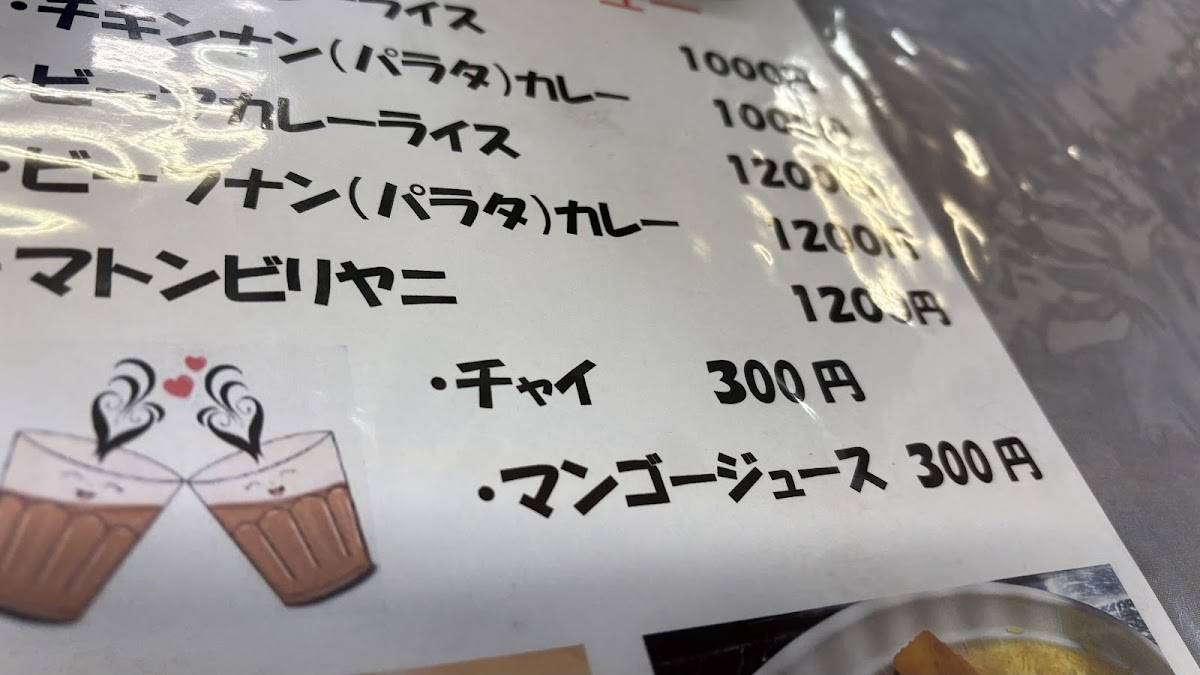 ーライス 1000円
・チキンナン(パラタ)カレー 1000円
・ビーフカレーライス 1200円
・ビーフナン(パラタ)カレー 1200円
・マトンビリヤニ 1200円
・チャイ 300円
・マンゴージュース 300円